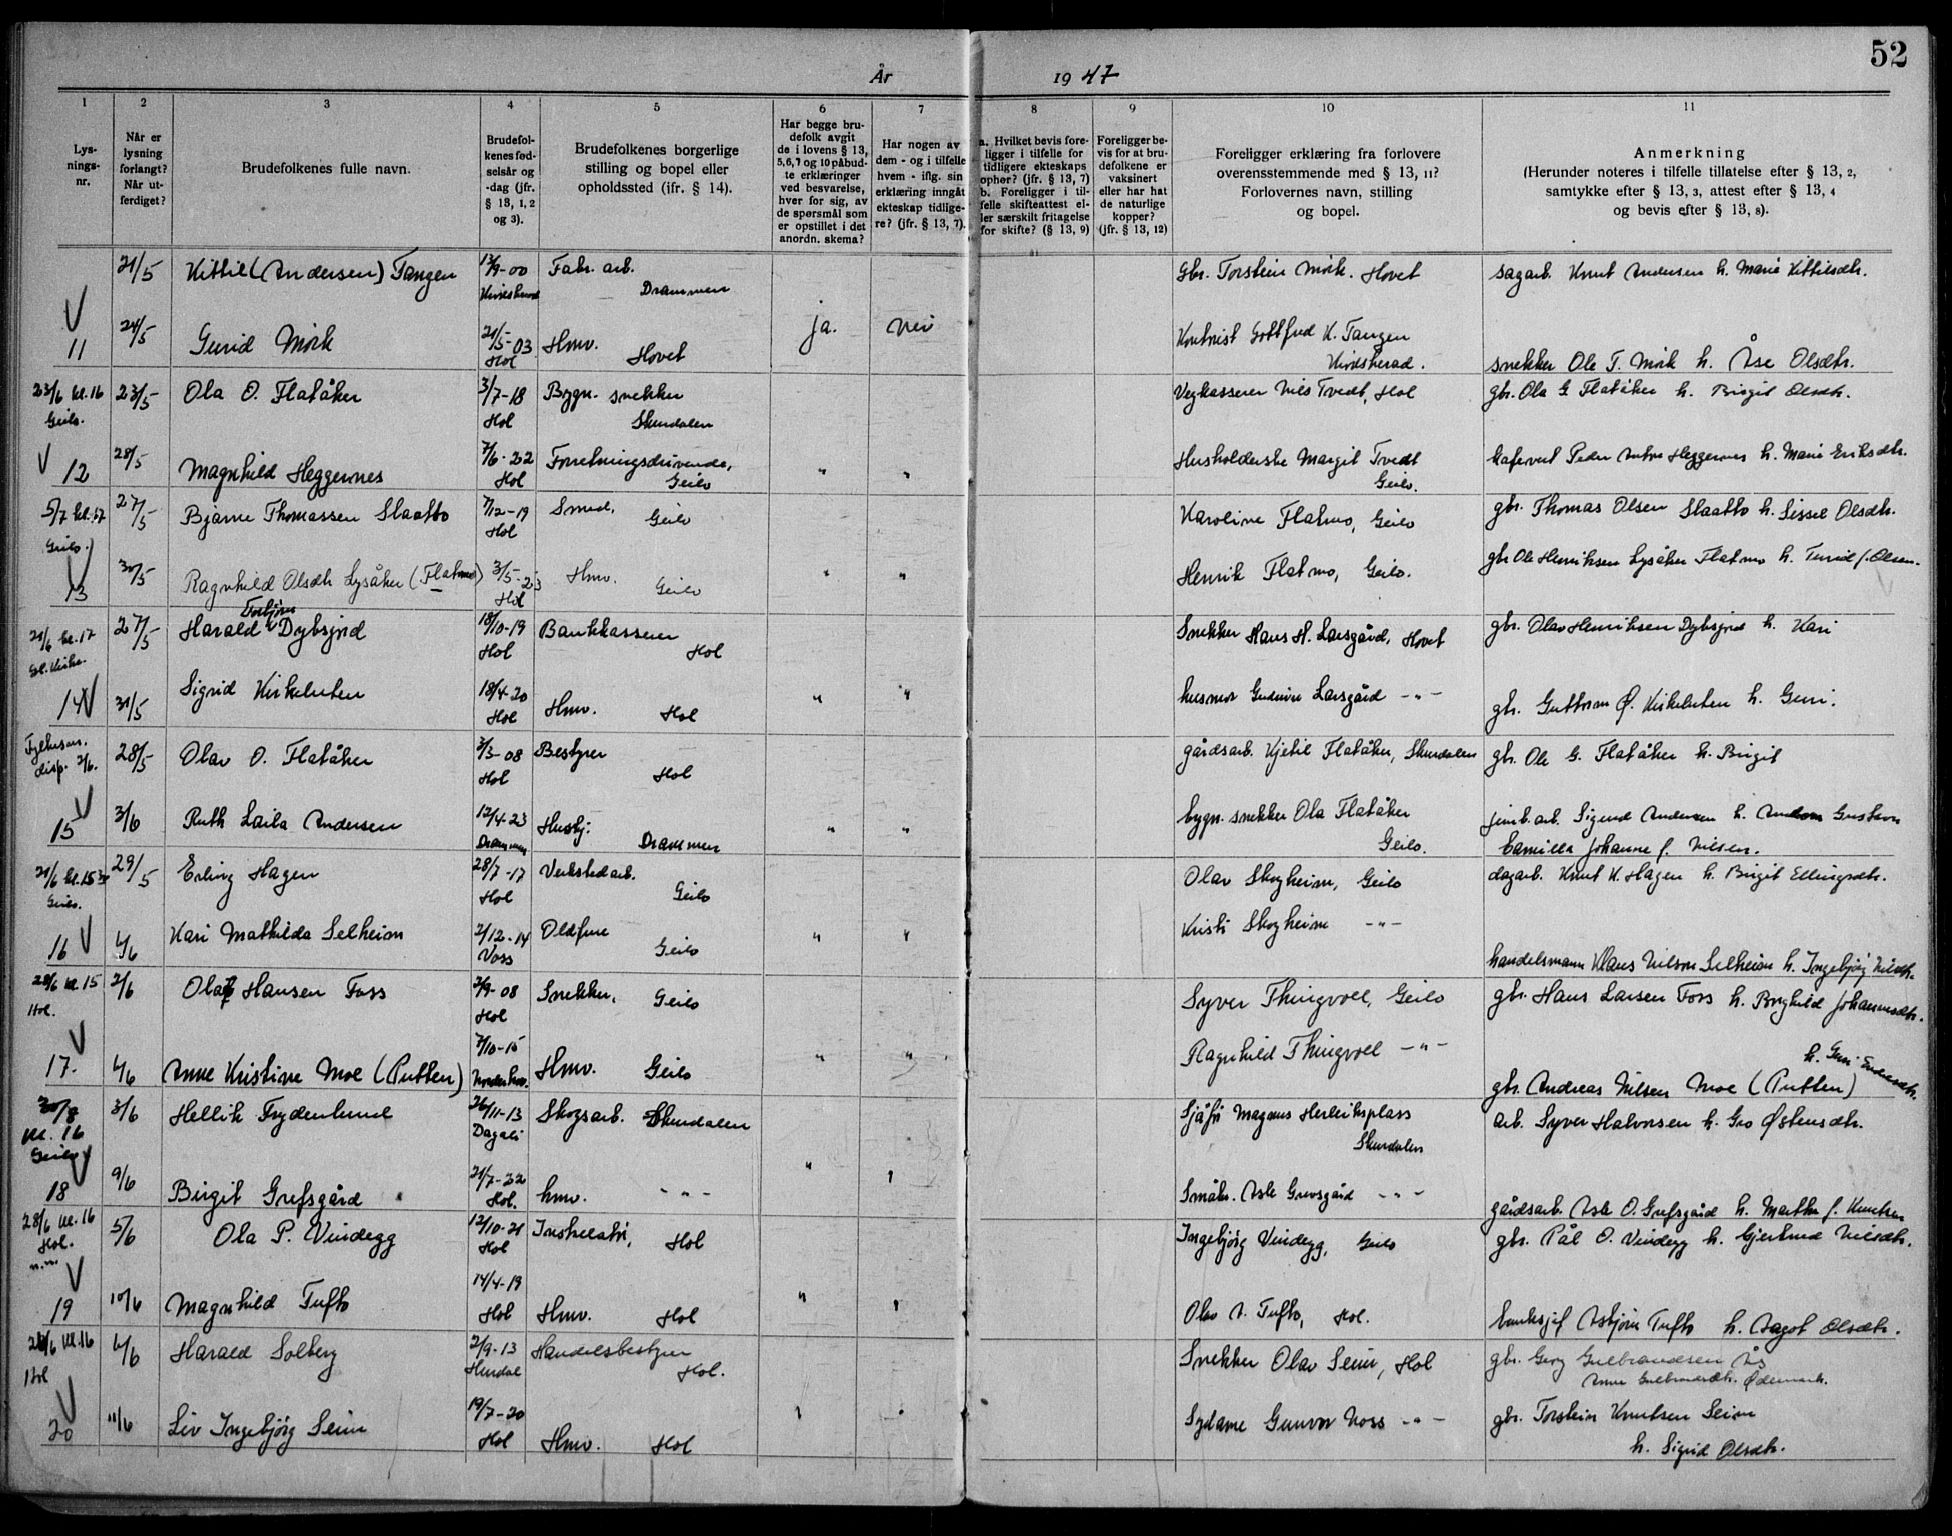 52
År 1947
1 2 3 4 5 6 7 8 9 10 11
Lys-
nings-
nr.
Når er
lysning
forlangt?
Når ut-
ferdiget?
Brudefolkenes fulle navn.
Brudefol-
kenes fød-
selsår og
-dag (jfr.
§ 13, 1, 2
og 3).
Brudefolkenes borgerlige
stilling og bopel eller
opholdssted (ifr. § 14).
Har begge bru-
defolk avgit
de i lovens § 13,
5,6,7 og 10 påbud-
te erklæringer
ved besvarelse,
hver for sig, av
de spørsmål som
er opstillet i det
anordn. skema?
Har nogen av
dem - og i tilfelle
hvem - iflg. sin
erklæring inngåt
ekteskap tidlige-
re? (jfr. § 13, 7).
a. Hvilket bevis fore-
ligger i tilfelle for
tidligere ekteskaps
ophør? (jfr. § 13, 7)
b. Foreligger i til-
felle skifteattest el-
ler særskilt fritagelse
for skifte? (§ 13, 9)
Foreligger be-
vis for at bru-
defolkene er
vaksinert
eller har hat
de naturlige
kopper?
(jfr. § 13, 12)
Foreligger erklæring fra forlovere
overensstemmende med § 13, 11?
Forlovernes navn, stilling
og bopel.
Anmerkning
(Herunder noteres i tilfelle tillatelse efter § 13, 2,
samtykke efter § 13, 3, attest efter § 13, 4
og bevis efter § 13, 8).
21/5 Kittil (Andersen) Tangen 13/9-00 Fabr. arb. Drammen Gbr. Torstein Mørk. Hovet sagarb. Knut Andersen h. Marie Kittilsdtr.
11 24/5 Gunid Mørk 21/5-03 Hol Hmv. Hovet ja. nei Gottfred K. Tangen
snekker Ole T. Mørk h. Åse Olsdtr.
23/6 kl. 16 Geilo. 23/5 Ola O. Flatåker 3/7-18 Hol Bygn. snekker Skurdalen Vegkasserer Nils Tvedt, Hol gbr. Ola G Flatåker h. Birgit Olsdtr.
12 28/5 Magnhild Heggernes 7/6-22 Hol Forretningsdrivende, Geilo " " Husholderske Margit Tvedt Geilo. kafevert Peder Heggernes h. Marie Eriksdtr.
5/7 kl. 17 Geilo. 27/5 Bjarne Thomassen Slaatto 7/12-19 Hol Smed, Geilo Karoline Flatmo, Geilo gbr. Thomas Olsen Slaatto h. Sissel Olsdtr.
13 30/5 Ragnhild Olsdtr Lysåker (Flatmo) 3/5-23 Hol Hmv. Geilo " " Henrik Flatmo, Geilo. gbr Ole Henriksen Lysåker Flatmo h. Turid f. Olsen.
21/6 kl. 17 Gl. Kirke. 27/5 Harald Torbjørn Dybsjord 18/10-19 Hol Bankkasserer Hol Snekker Hans H. Larsgård, Hovet gbr. Olav Henriksen Dybsjord h. Kari
14 31/5 Sigrid Kirkeluten 18/4-20 Hol Hmv. Hol " " husmor Larsgård -"- gbr. Guttorm Ø. Kirkeluten h. Guri.
Fylkesm. disp. 2/6. 28/5 Olav O. Flatåker 2/3-08 Hol Bestyrer Hol gårdsarb. Kjetil Flatåker, Skurdalen gbr. Ole G. Flatåker h. Birgit
15 3/6 Ruth Laila Andersen 12/4-23 Drammen Husbj: Drammen " " bygn. snekker Ola Flatåker Geilo. jernb. arb. Sigurd Andersen h.
Camilla Johanne f. Nilsen.
21/6 kl. 15 30 Geilo. 29/5 Erling Hagen 28/7-17 Hol Verksted arb. Geilo Olav Skogheim, Geilo dagarb. Knut K. Hagen h. Birgit Ellingsdtr.
16 4/6 Kari Mathilda Selheim 2/12-14 Voss Oldfrue Geilo " " Kristi Skogheim -"-
handelsmann Klaus Nilsen Selheim h. Ingebjørg Nilsdtr.
28/6 kl. 15 Hol. 2/6 Olaf Hansen Foss 2/9-08 Hol Snekker, Geilo Syver Thingvoll, Geilo gbr. Hans Larsen Foss h. Borghild Johannesdtr.
17. 4/6 Anne Kristine Moe (Putten) 7/10-15 Hmv. Geilo " " Ragnhild Thingvoll -"- gbr. Andreas Nilsen Moe (Putten)
30/8 kl. 16 Geilo 3/6 Hellik Frydenlund 26/11-13 Dagali Skogsarb. Skurdalen Sjåfør Magnus Herleiksplass Skurdalen arb. Syver Halvorsen h. Gro Østensdtr.
18 9/6 Birgit Grefsgård 21/7-22 Hol. hmv. -"- " " Småbr. Asle Grevsgård -"- gårdsarb. Asle O. Grefsgård h. Marthe f. Knutsen
28/6 kl. 16 Hol. 5/6 Ola P. Vindegg 12/10-21 Hol Hol Ingebjørg Vindegg, Geilo gbr. Pål O. Vindegg h. Gjertrud Nilsdtr.
19 10/6 Magnhild Tufto 14/4-19 Hol Hmv. Hol " " Olav A. Tufto, Hol. banksjef Asbjørn Tufto h. Aagot Olsdtr.
kl. 16 Hol 4/6 Harald Solberg 2/9-13 Hurdal Handelsbestyrer Hol. Snekker Olav Seim, Hol gbr. Georg Gulbrandsen Ås
Anne Gulbrandsdtr. Ødemark.
20 11/6 Liv Ingebjørg Seim 19/7-20 Hol Hmv. Hol " " Sydame Gunvor Noss -"- gbr. Torstein Knutsen Seim
h. Sigrid Olsdtr.